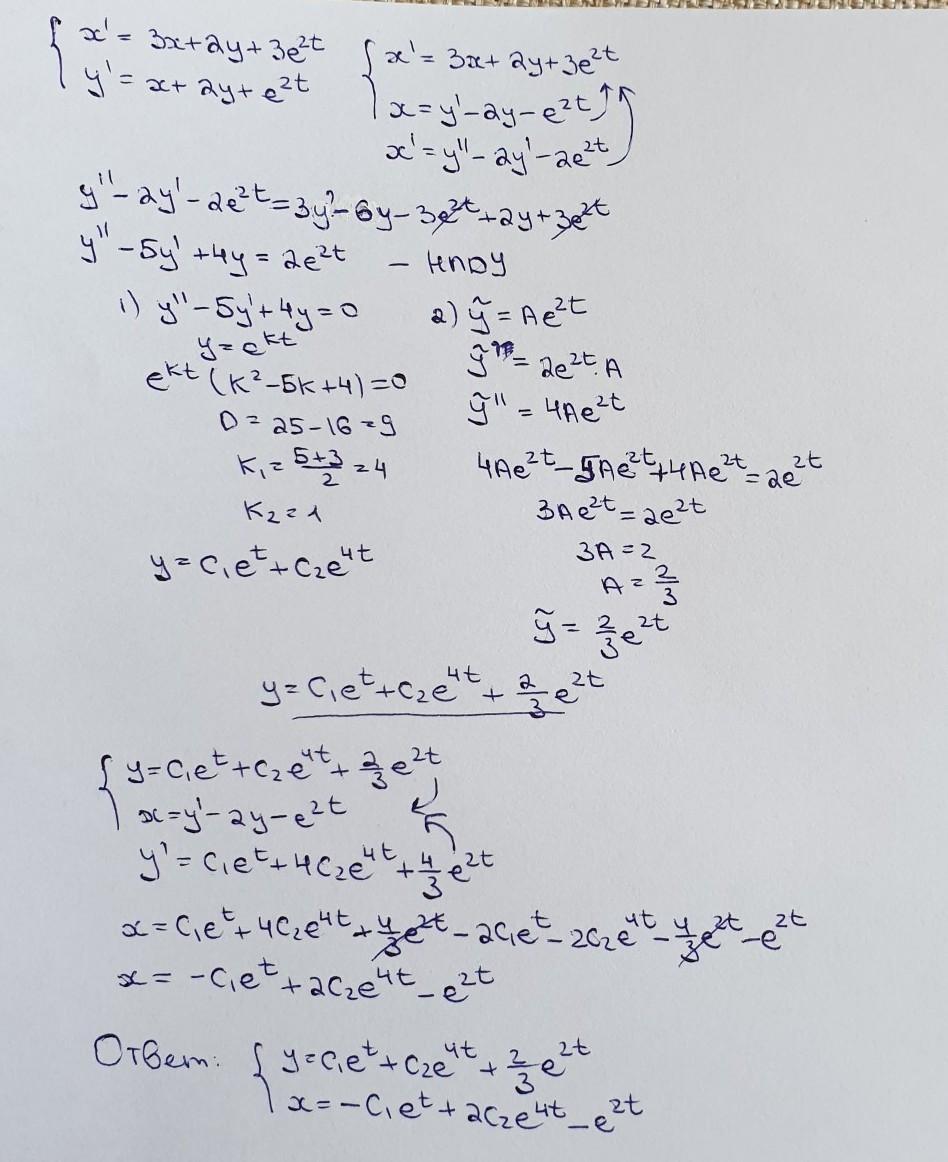 { x' = 3x+2y+3e^{2t}
y' = x+2y+e^{2t}
{ x' = 3x+2y+3e^{2t}
x=y'-2y-e^{2t}
x'=y''-2y'-2e^{2t}
y''-2y'-2e^{2t}=3y'-6y-3e^{2t}+2y+3e^{2t}
y''-5y'+4y=2e^{2t} - НЛДУ
1) y''-5y'+4y=0
y=e^{kt}
e^{kt}(k²-5k+4)=0
D=25-16=9
K₁=\frac{5+3}{2}=4
K₂=1
y=C₁e^t+C₂e^{4t}
2) ỹ=Ae^{2t}
ỹ'=2e^{2t}·A
ỹ''=4Ae^{2t}
4Ae^{2t}-5Ae^{2t}+4Ae^{2t}=2e^{2t}
3Ae^{2t}=2e^{2t}
3A=2
A=\frac{2}{3}
ỹ=\frac{2}{3}e^{2t}
y=C₁e^t+C₂e^{4t}+\frac{2}{3}e^{2t}
{ y=C₁e^t+C₂e^{4t}+\frac{2}{3}e^{2t}
x=y'-2y-e^{2t}
y'=C₁e^t+4C₂e^{4t}+\frac{4}{3}e^{2t}
x=C₁e^t+4C₂e^{4t}+\frac{4}{3}e^{2t}-2C₁e^t-2C₂e^{4t}-\frac{4}{3}e^{2t}-e^{2t}
x=-C₁e^t+2C₂e^{4t}-e^{2t}
Ответ: { y=C₁e^t+C₂e^{4t}+\frac{2}{3}e^{2t}
x=-C₁e^t+2C₂e^{4t}-e^{2t}